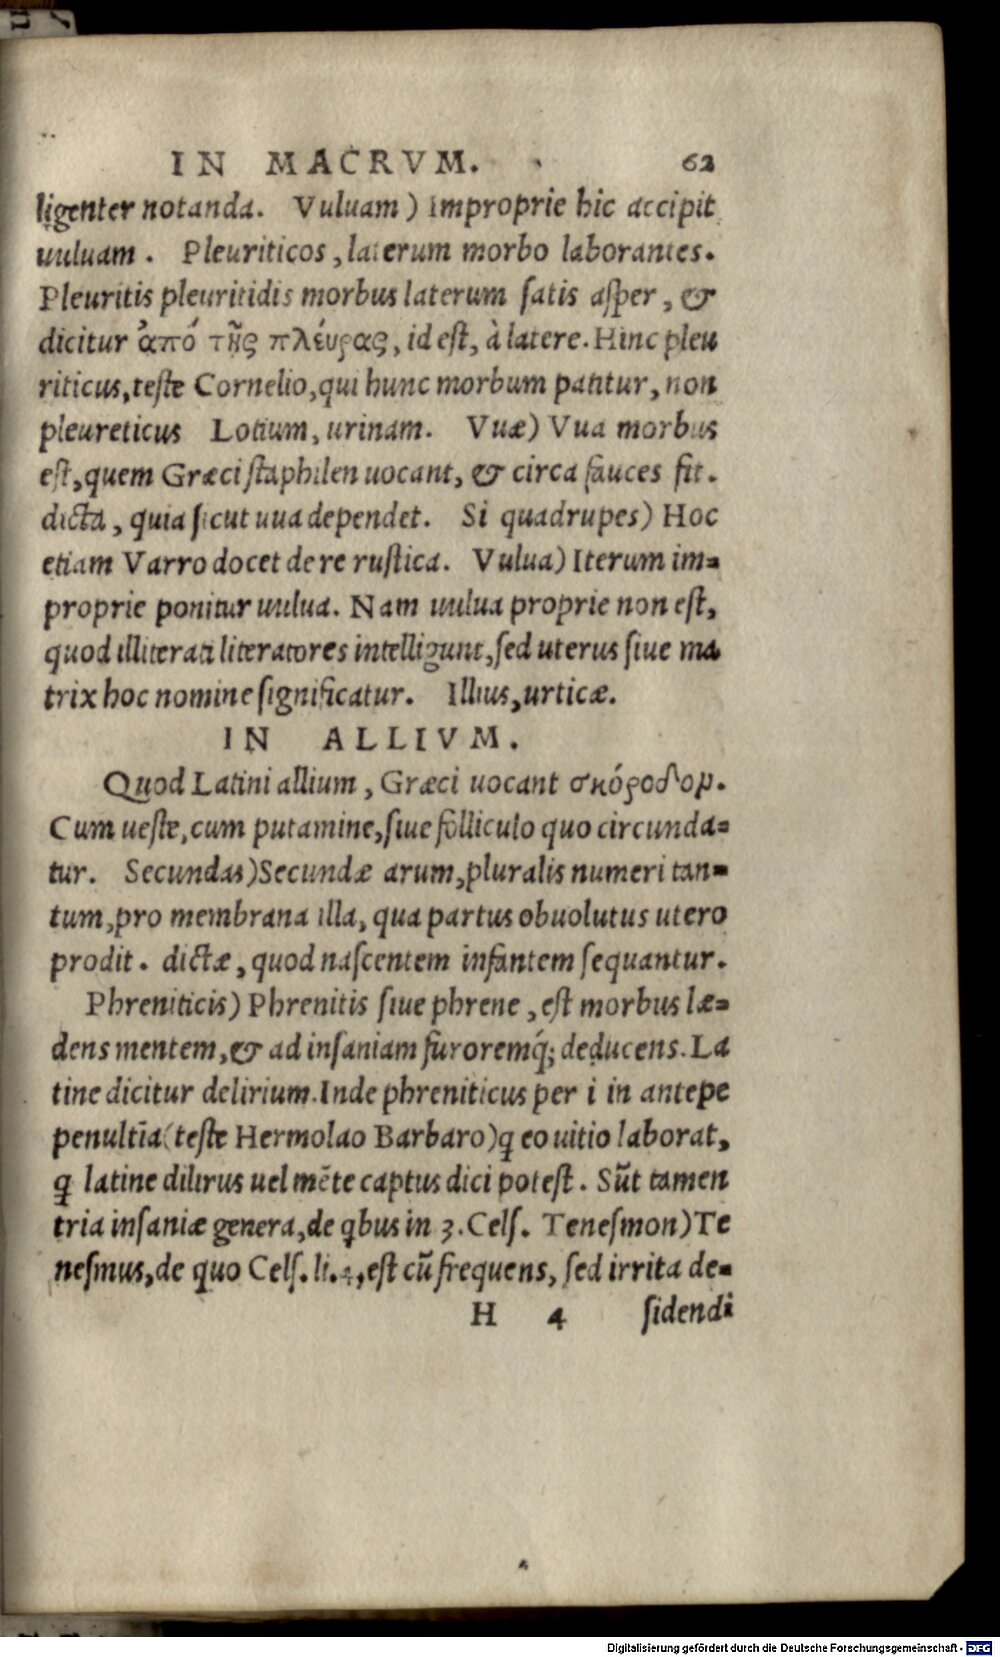 IN MACRVM. 62
ligenter notanda. Vuluam) Improprie hic accipit
uuluam. Pleuriticos, laterum morbo laborantes.
Pleuritis pleuritidis morbus laterum ſatis aſper, &
dicitur ἀπό τῆς πλέυρας, id eſt, à latere. Hinc pleu
riticus, teſte Cornelio, qui hunc morbum patitur, non
pleureticus Lotium, urinam. Vuæ) Vua morbus
eſt, quem Græci ſtaphilen uocant, & circa fauces fit.
dicta, quia ſicut uua dependet. Si quadrupes) Hoc
etiam Varro docet de re ruſtica. Vulua) Iterum im=
proprie ponitur uulua. Nam uulua proprie non eſt,
quod illiterati literatores intelligunt, ſed uterus ſiue ma
trix hoc nomine ſignificatur. Illius, urticæ.
IN ALLIVM.
Quod Latini allium, Græci uocant σκόροδομ.
Cum ueſte, cum putamine, ſiue folliculo quo circunda=
tur. Secundas) Secundæ arum, pluralis numeri tan=
tum, pro membrana illa, qua partus obuolutus utero
prodit. dictæ, quod naſcentem infantem ſequantur.
Phreniticis) Phrenitis ſiue phrene, eſt morbus læ=
dens mentem, & ad inſaniam furoremq́; deducens. La
tine dicitur delirium. Inde phreniticus per i in antepe
penultĩa (teſte Hermolao Barbaro) q eo uitio laborat,
q latine dilirus uel mẽte captus dici poteſt. Sũt tamen
tria inſaniæ genera, de qbus in 3. Celſ. Teneſmon) Te
neſmus, de quo Celſ. li. 4, eſt cũ frequens, ſed irrita de=
H 4 ſidendi
Digitalisierung gefördert durch die Deutsche Forschungsgemeinschaft - DFG